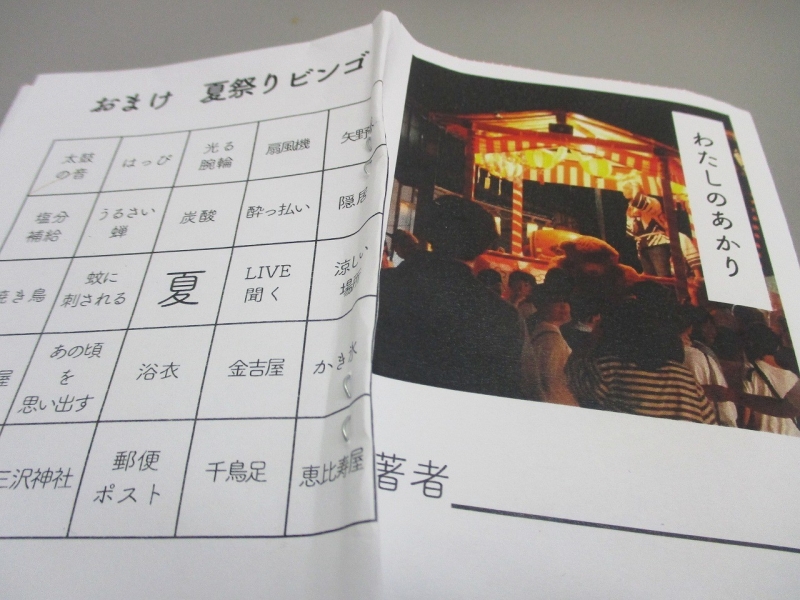 おまけ 夏祭りビンゴ
太鼓
の音
はっぴ
光る
腕輪
扇風機
矢野
塩分
補給
うるさい
蝉
炭酸
酔っ払い
隠居
き鳥
蚊に
刺される
夏
LIVE
聞く
涼しい
場所
屋
あの頃
を
思い出す
浴衣
金吉屋
かき氷
三沢神社
郵便
ポスト
千鳥足
恵比寿屋
わたしのあかり
著者